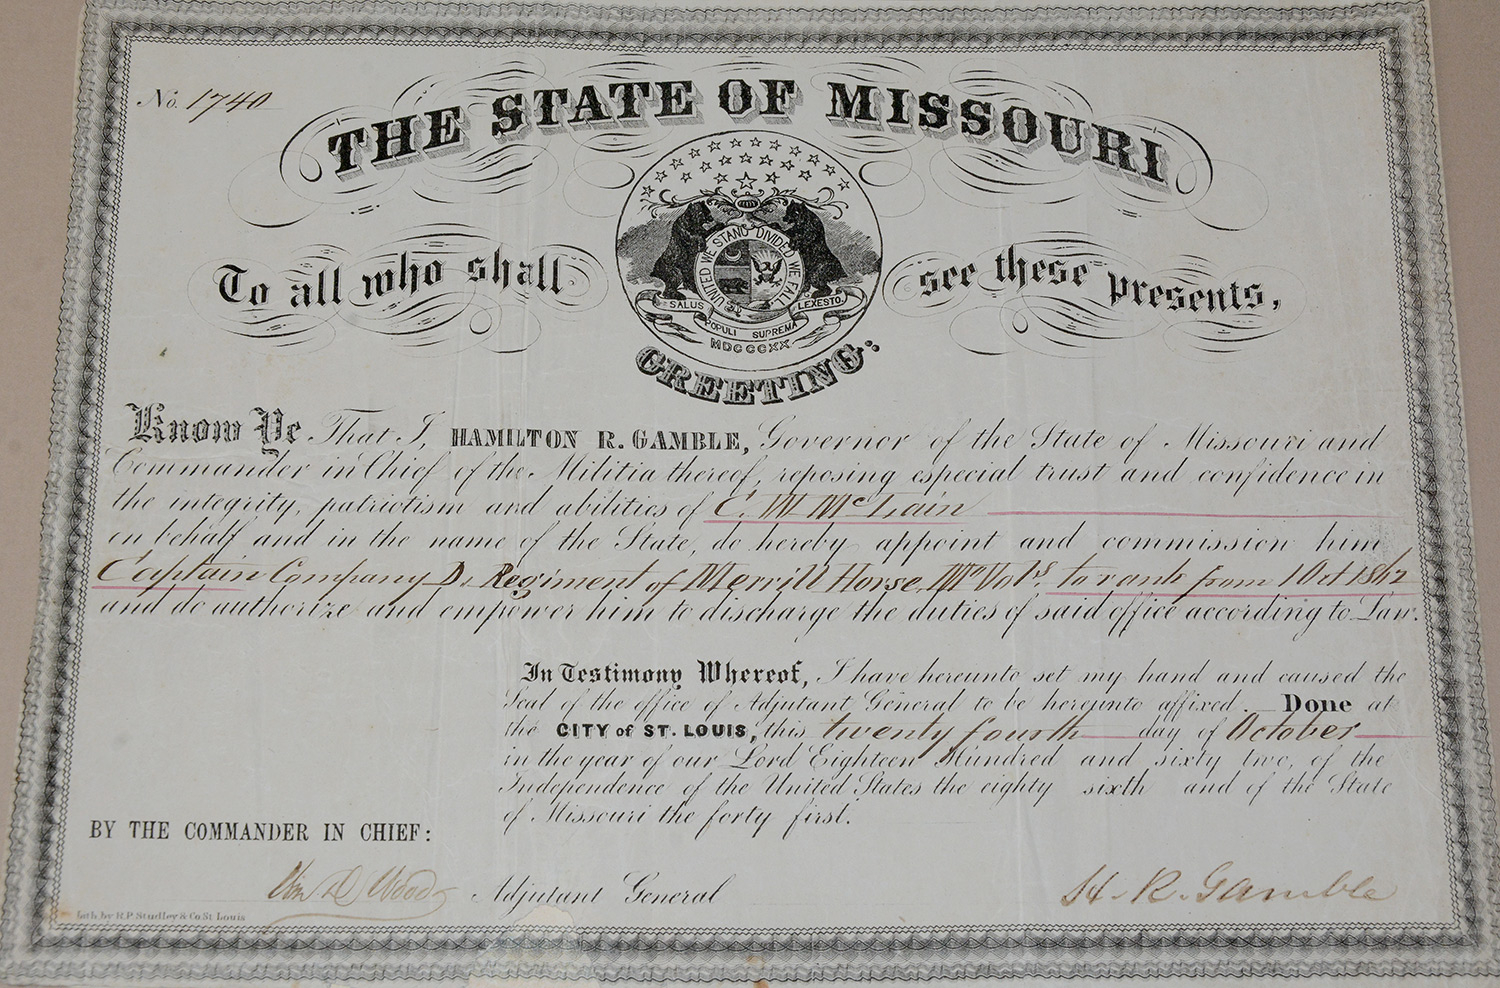 No. 1740
THE STATE OF MISSOURI
UNITED WE STAND DIVIDED WE FALL
SALUS POPULI SUPREMA LEX ESTO.
MDCCCXX
To all who shall see these presents,
GREETING:
Know Ye That I, HAMILTON R. GAMBLE, Governor of the State of Missouri and
Commander in Chief of the Militia thereof, reposing especial trust and confidence in
the integrity, patriotism and abilities of C. W. McLain
on behalf and in the name of the State, do hereby appoint and commission him
Captain Company D, Regiment of Merrill Horse, Mo Vols to rank from 1 Oct 1862
and do authorize and empower him to discharge the duties of said office according to Law.
In Testimony Whereof, I have hereunto set my hand and caused the
Seal of the office of Adjutant General to be hereunto affixed. Done at
the CITY of ST. LOUIS, this twenty fourth day of October
in the year of our Lord Eighteen Hundred and sixty two, of the
Independence of the United States the eighty sixth and of the State
of Missouri the forty first.
BY THE COMMANDER IN CHIEF:
Wm D Wood Adjutant General H. R. Gamble
Lith by R.P. Studley & Co St Louis